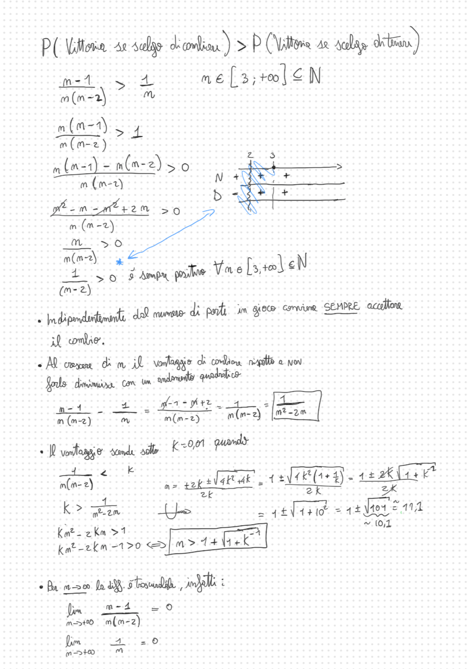 P( Vittoria se scelgo di cambiare) > P (Vittoria se scelgo di tenere)
m-1/m(m-2) > 1/m    m ∈ [3; +∞] ⊆ ℕ
m(m-1)/m(m-2) > 1
m(m-1) - m(m-2)/m(m-2) > 0
2 3
N + + +
D - + +
m² - m - m² + 2m/m(m-2) > 0
m/m(m-2) > 0
*
1/(m-2) > 0 è sempre positivo ∀ m ∈ [3,+∞] ⊆ ℕ
• Indipendentemente dal numero di porte in gioco conviene SEMPRE accettare
il cambio.
• Al crescere di m il vantaggio di cambiare rispetto a non
farlo diminuisce con un andamento quadratico
m-1/m(m-2) - 1/m = m-1-m+2/m(m-2) = 1/m(m-2) = 1/m²-2m
• Il vantaggio scende sotto K=0,01 quando
1/m(m-2) < K    m = +2K ± √4K²+4K/2K = 1 ± √4K²(1+1/K)/2K = 1 ± 2K√1+K⁻¹/2K
K > 1/m²-2m    = 1 ± √1+10² = 1 ± √101 ≈ 11,1
~ 10,1
Km² - 2Km > 1
Km² - 2Km - 1 > 0 ⟺ m > 1 + √1+K⁻¹
• Per m→∞ la diff. è trascurabile, infatti:
lim m→+∞ m-1/m(m-2) = 0
lim m→+∞ 1/m = 0